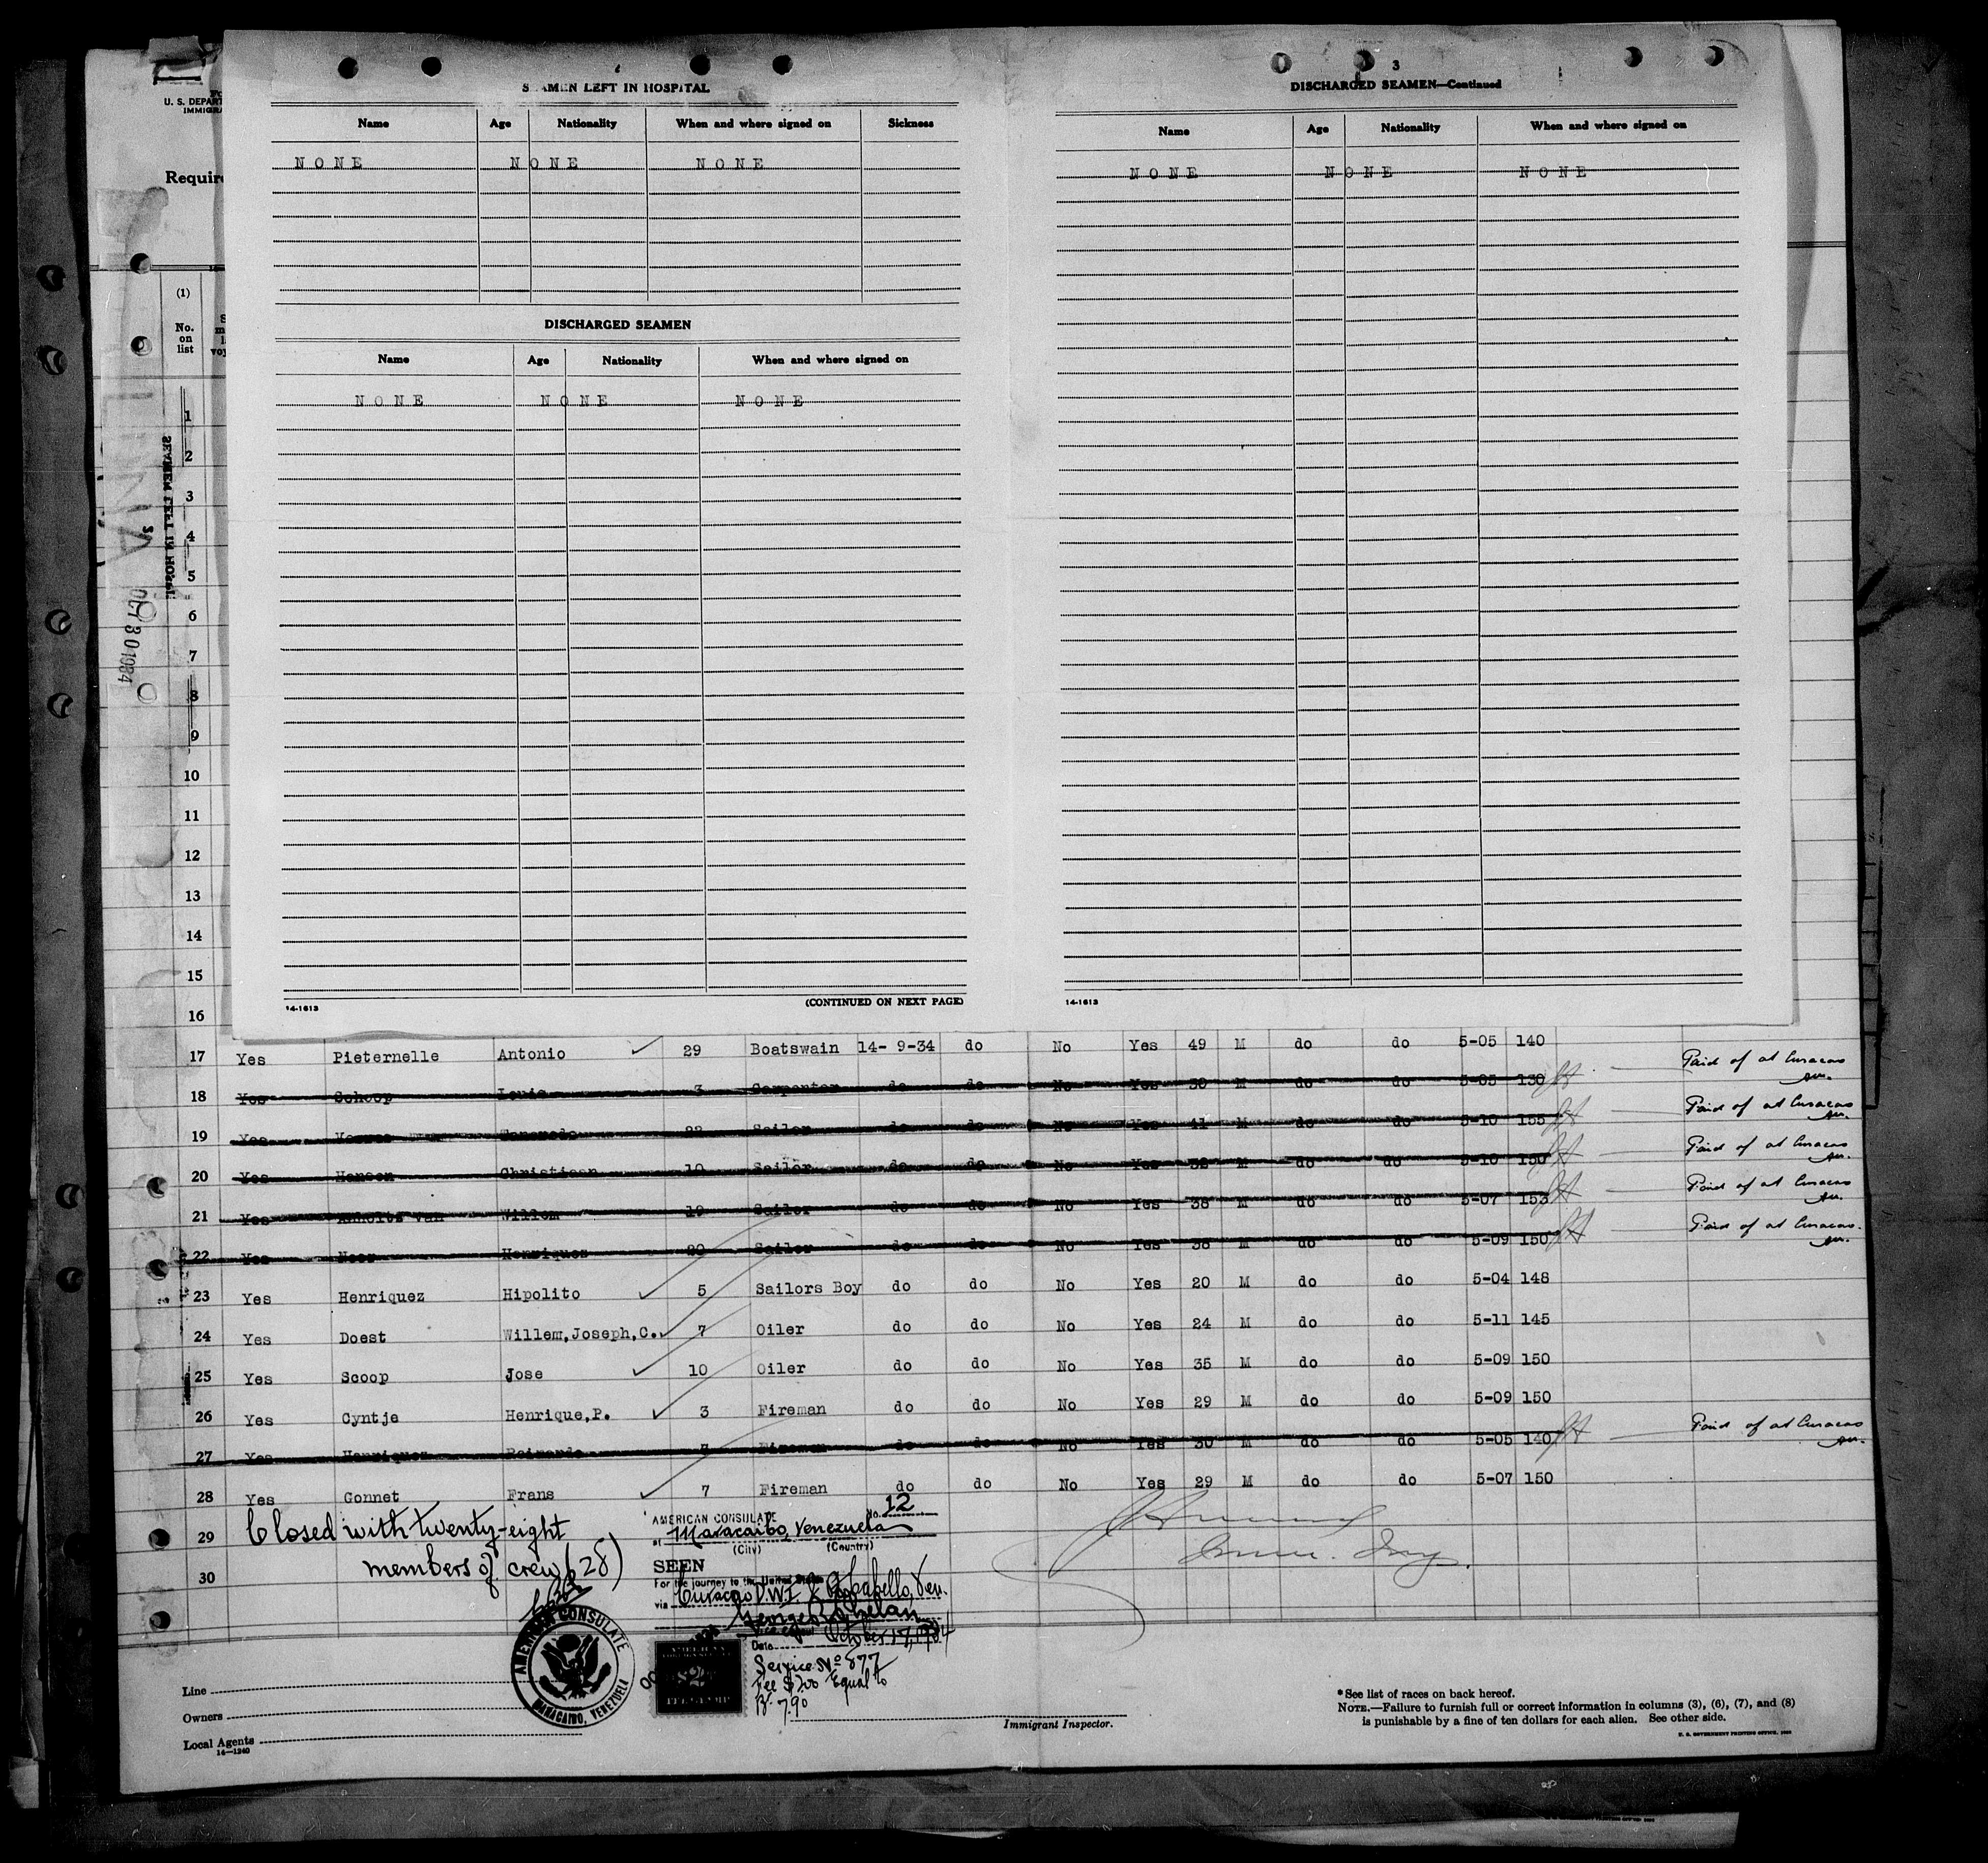 SEAMEN LEFT IN HOSPITAL
Name Age Nationality When and where signed on Sickness
NONE NONE NONE
DISCHARGED SEAMEN
Name Age Nationality When and where signed on
NONE NONE NONE
14-1613 (CONTINUED ON NEXT PAGE)
3
DISCHARGED SEAMEN—Continued
Name Age Nationality When and where signed on
NONE NONE NONE
14-1613
U. S. DEPART
IMMIGRA
Require
(1)
No.
on
list
SEAMEN LEFT IN HOSPI
OCT 30 1934
1
2
3
4
5
6
7
8
9
10
11
12
13
14
15
16
17 Yes Pieternelle Antonio 29 Boatswain 14- 9-34 do No Yes 49 M do do 5-05 140
18 Yes Schoop Louis 3 Carpenter do do No Yes 30 M do do 5-05 130 Paid of at Curacao
19 Yes Sailor do do No Yes 41 M do do 5-10 155 Paid of at Curacao
20 Yes Hansen Christiaan 10 Sailor do do No Yes 32 M do do 5-10 150 Paid of at Curacao
21 Yes van Willem 19 Sailor do do No Yes 38 M do do 5-07 153 Paid of at Curacao
22 Yes Henriques 20 Sailor do do No Yes 38 M do do 5-09 150 Paid of at Curacao.
23 Yes Henriquez Hipolito 5 Sailors Boy do do No Yes 20 M do do 5-04 148
24 Yes Doest Willem,Joseph,C. 7 Oiler do do No Yes 24 M do do 5-11 145
25 Yes Scoop Jose 10 Oiler do do No Yes 35 M do do 5-09 150
26 Yes Cyntje Henrique,P. 3 Fireman do do No Yes 29 M do do 5-09 150
27 Yes Henriquez Fireman do do No Yes 30 M do do 5-05 140 Paid of at Curacao
28 Yes Gonnet Frans 7 Fireman do do No Yes 29 M do do 5-07 150
29 Closed with twenty-eight
30 members of crew (28)
AMERICAN CONSULATE No. 12
at Maracaibo, Venezuela
(City) (Country)
SEEN
For the journey to the United States
via Curacao D.W.I. & Pto. Cabello, Ven.
Date October 17, 1934
Service No 877
Fee $2.00 Equal to
Bs. 7.90
AMERICAN CONSULATE
MARACAIBO, VENEZUELA
$2
FEE STAMP
Line
Owners
Local Agents
14—1240
Immigrant Inspector.
*See list of races on back hereof.
NOTE.—Failure to furnish full or correct information in columns (3), (6), (7), and (8)
is punishable by a fine of ten dollars for each alien. See other side.
U. S. GOVERNMENT PRINTING OFFICE